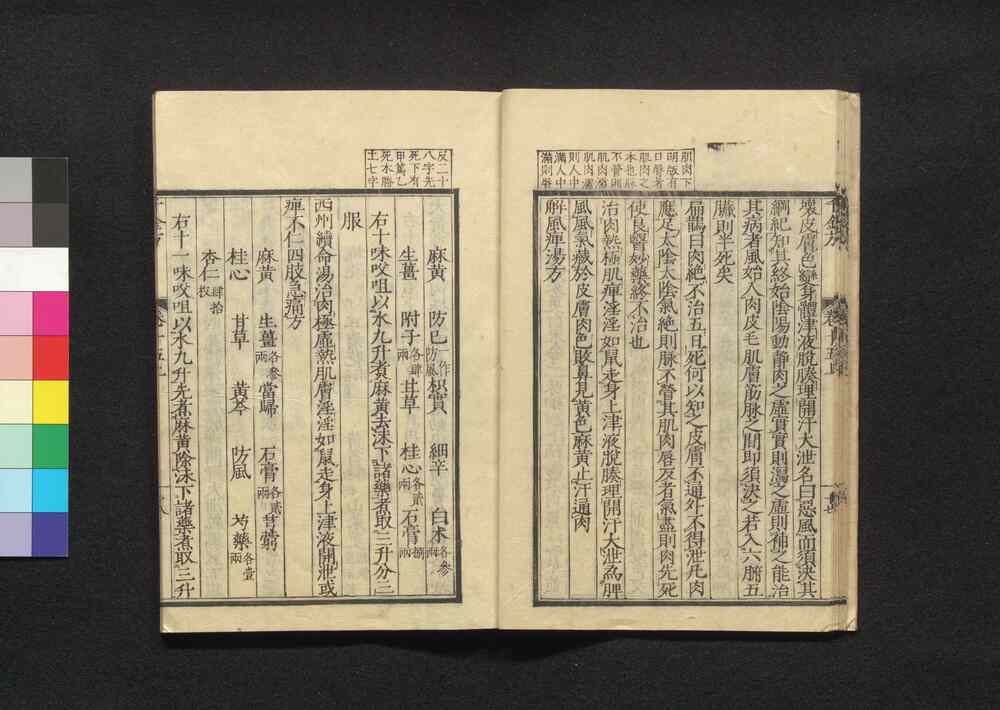 肌肉下
明版有
曰唇者
肌肉之
本也脉
不營則
肌肉濡
則人中
滿人中
滿則唇
壞皮膚色變身體津液脫腠理開汗大泄名曰惡風而須決其
綱紀知其終始陰陽動靜肉之虛實實則瀉之虛則補之能治
其病者風始入肉皮毛肌膚筋脉之間即須決之若入六腑五
臟則半死矣
扁鵲曰肉絶不治五日死何以知之皮膚不通外不得泄凡肉
應足太陰太陰氣絶則脉不營其肌肉唇反者氣盡則肉先死
使良醫妙藥終不治也
治肉熱極肌痺淫淫如鼠走身上津液脫腠理開汗大泄為脾
風風氣藏於皮膚肉色敗鼻見黃色麻黃止汗通肉
解風痺湯方
反二十
八字先
死下有
甲篤乙
死木勝
土七字
麻黃 防已防風作枳實 細辛 白朮各參兩
生薑 附子各肆兩甘草 桂心各貳兩石膏捌兩
右十味㕮咀以水九升煮麻黃去沫下諸藥煮取三升分三
服
西州續命湯治肉極虛熱肌膚淫淫如鼠走身上津液開泄或
痺不仁四肢急痛方
麻黃 生薑各參兩當歸 石膏各貳兩芎藭
桂心 甘草 黃芩 防風 芍藥各壹兩
杏仁肆拾枚
右十一味㕮咀以水九升先煮麻黃除沫下諸藥煮取三升